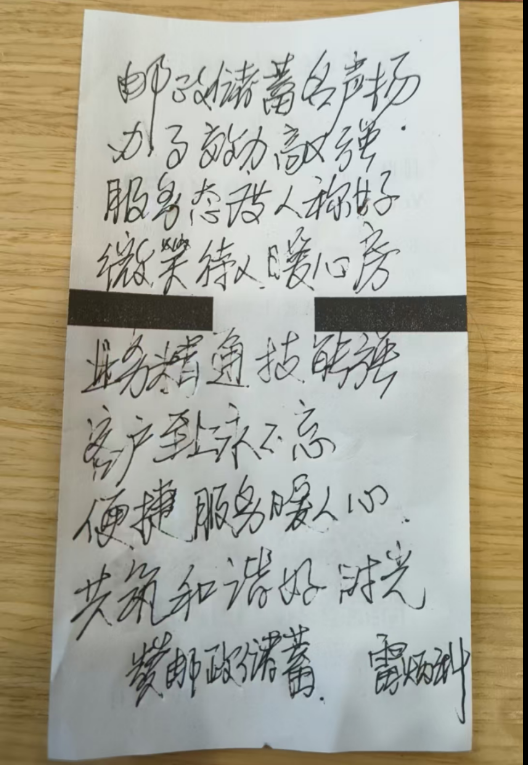 邮政储蓄名声扬
办事效力高又强
服务态度人称好
微笑待人暖心房
业务精通技能强
客户至上永不忘
便捷服务暖人心
共筑和谐好时光
赞邮政储蓄 雷炳科